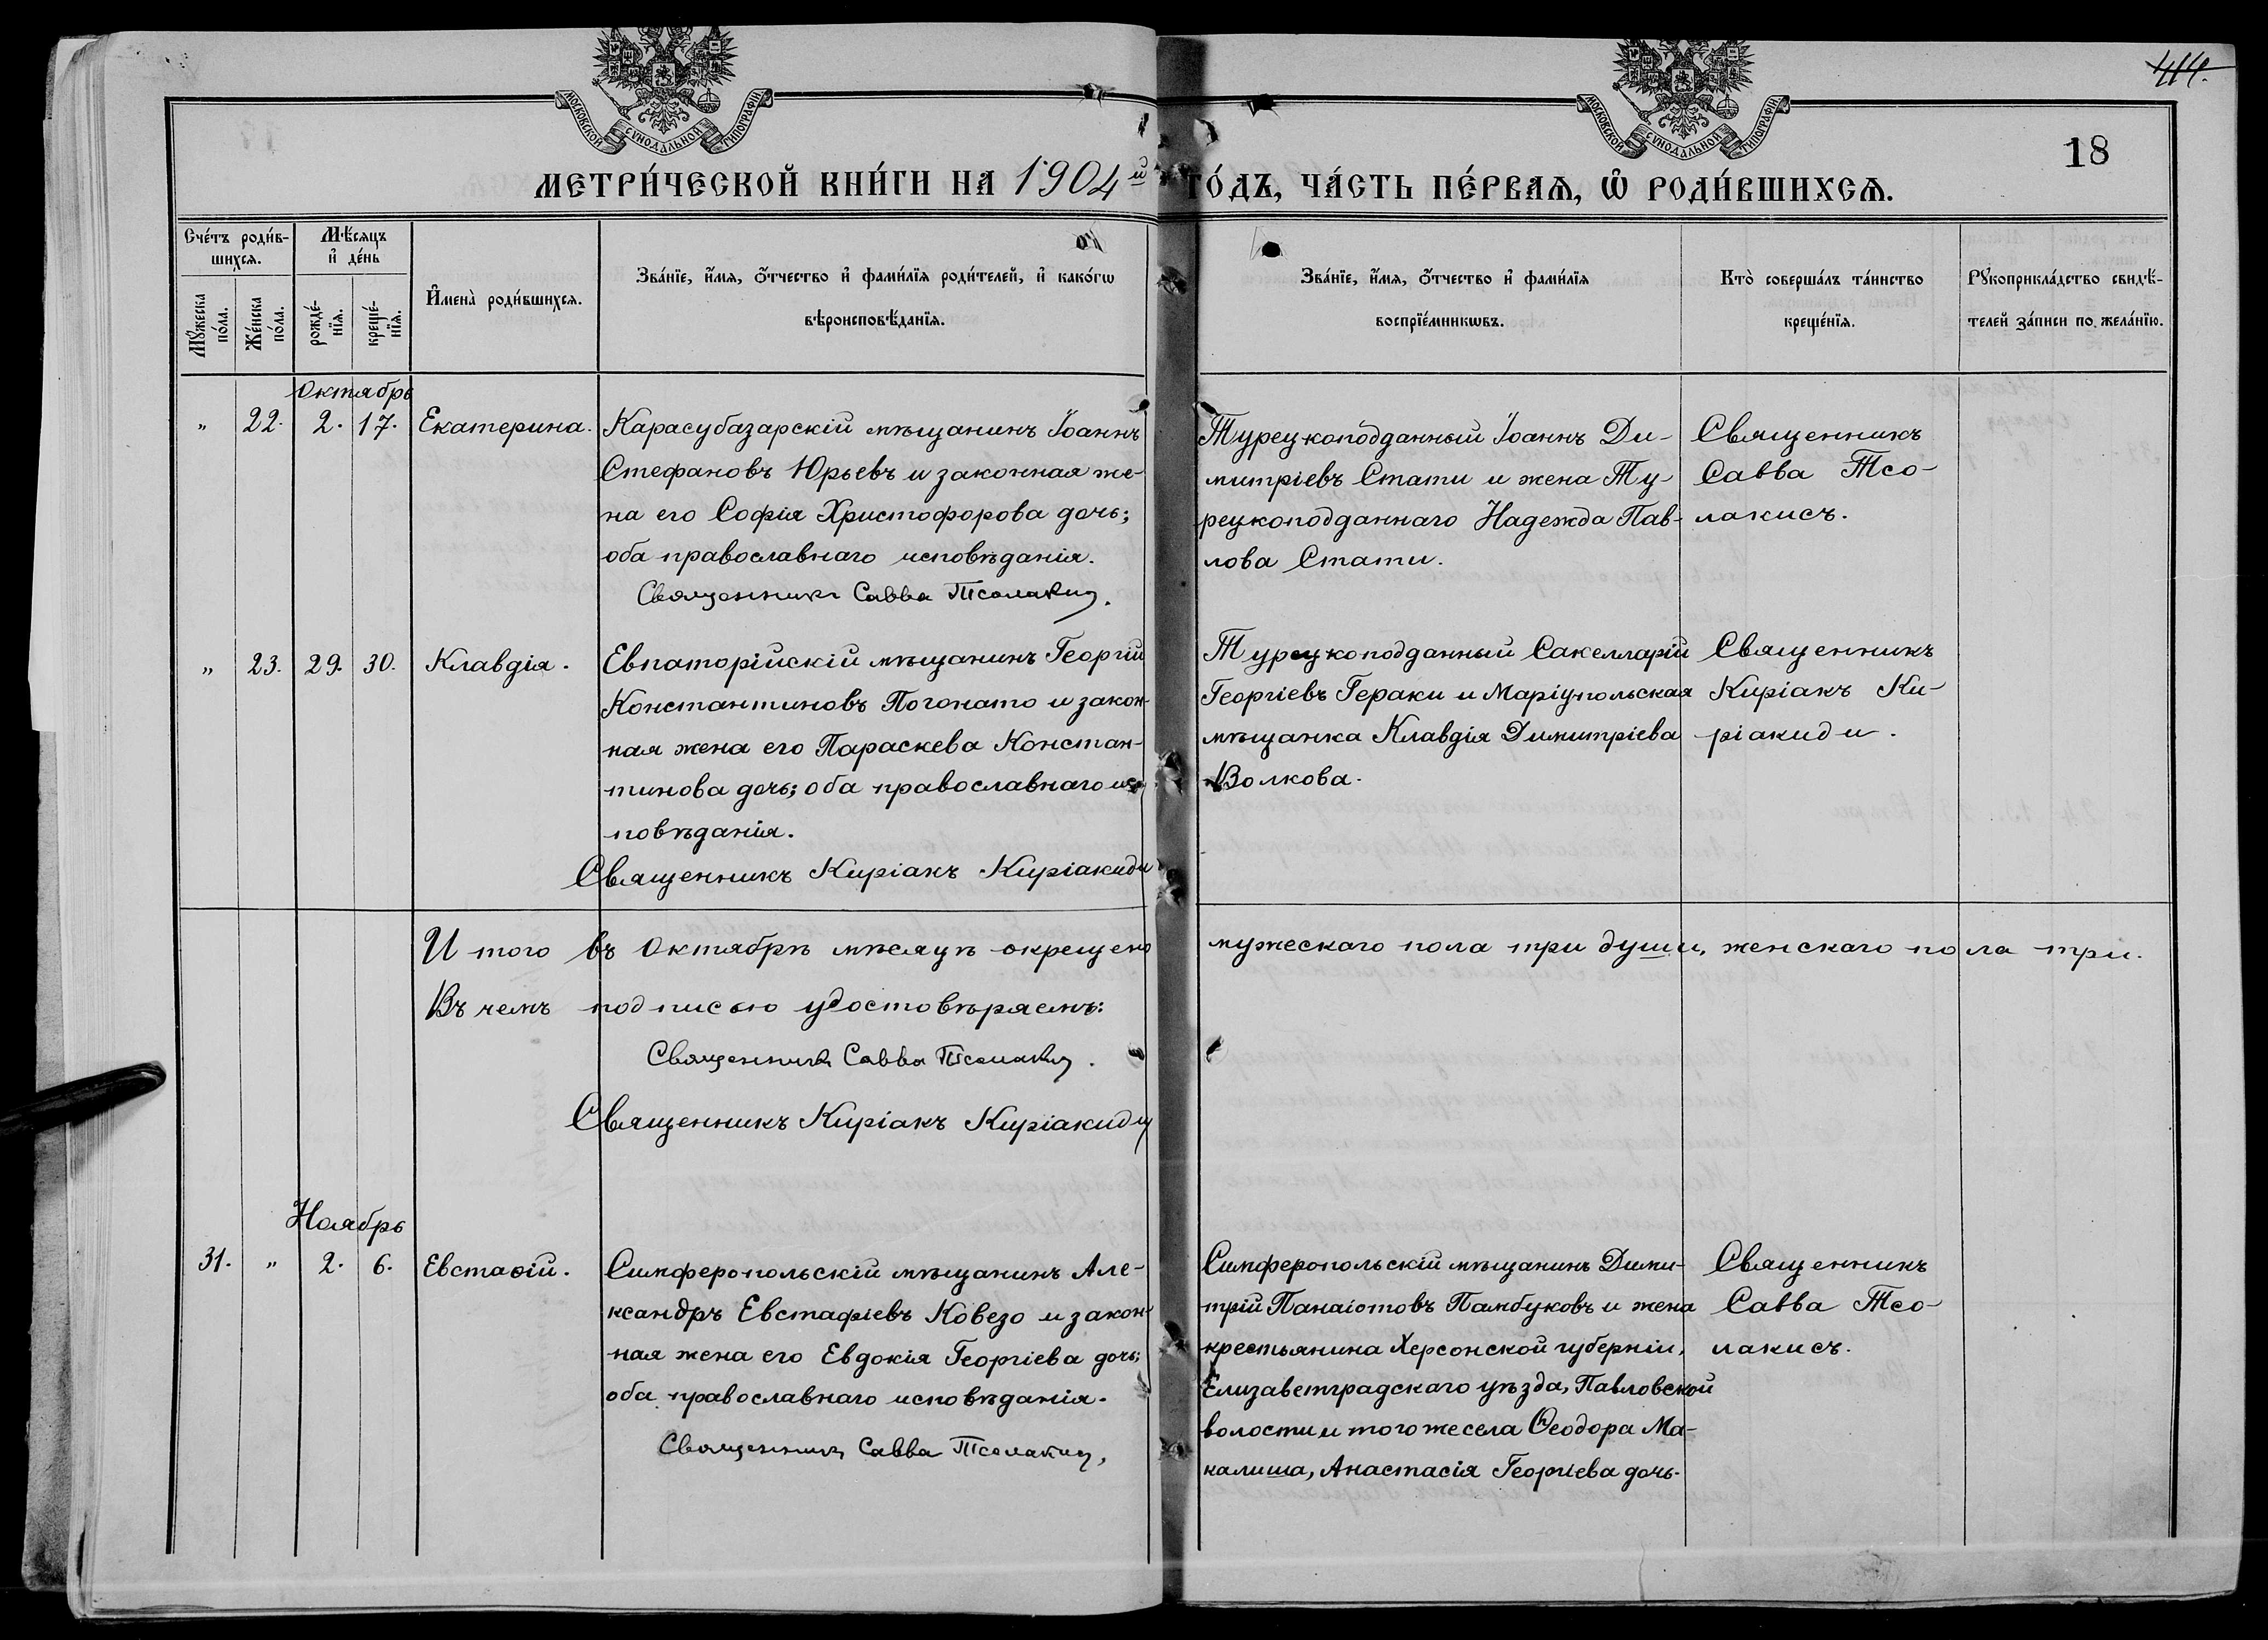 414.
18
МОСКОВСКОЙ СѴНОДАЛЬНОЙ ТИПОГРАФІИ
МОСКОВСКОЙ СѴНОДАЛЬНОЙ ТИПОГРАФІИ
МЕТРИ́ЧЕСКОЙ КНИ́ГИ НА 1904й ГО́ДЪ, ЧА́СТЬ ПЕ́РВАѦ, Ѡ҆ РОДИ́ВШИХСѦ.
Сче́тъ роди́в-
шихсѧ.
Мꙋ́жеска по́ла.
Же́нска по́ла.
Мѣ́сѧцъ
и҆ де́нь
рожде́-
нїѧ.
креще́-
нїѧ.
И҆мена̀ роди́вшихсѧ.
Зва́нїе, и҆́мѧ, ѻ҆́тчество и҆ фами́лїѧ роди́телей, и҆ како́гѡ
вѣроисповѣ́данїѧ.
Зва́нїе, и҆́мѧ, ѻ҆́тчество и҆ фами́лїѧ
воспрїе́мникѡвъ.
Кто̀ соверша́лъ та́инство
креще́нїѧ.
Рꙋкоприкла́дство свидѣ́-
телей за́писи по жела́нїю.
Октябрь
" 22. 2. 17. Екатерина.
Карасубазарскій мѣщанинъ Іоаннъ
Стефановъ Юрьевъ и законная же-
на его Софія Христофорова дочь;
оба православнаго исповѣданія.
Священникъ Савва Тсолакис.
Турецкоподданный Іоаннъ Ди-
митріевъ Стати и жена Ту-
рецкоподданнаго Надежда Пав-
лова Стати.
Священникъ
Савва Тсо-
лакисъ.
" 23. 29. 30. Клавдія.
Евпаторійскій мѣщанинъ Георгій
Константиновъ Погонато и закон-
ная жена его Параскева Констан-
тинова дочь; оба православнаго ис-
повѣданія.
Священникъ Киріакъ Киріакиди
Турецкоподданный Сакелларій
Георгіевъ Гераки и Маріупольская
мѣщанка Клавдія Димитріева
Волкова.
Священникъ
Киріакъ Ки-
ріакиди.
Итого въ Октябрѣ мѣсяцѣ окрещено мужескаго пола три души, женскаго пола три.
Въ чемъ подписью удостовѣряемъ:
Священникъ Савва Тсолакис.
Священникъ Киріакъ Киріакиди
Ноябрь
31. " 2. 6. Евстаѳій.
Симферопольскій мѣщанинъ Але-
ксандръ Евстафіевъ Ковезо и закон-
ная жена его Евдокія Георгіева дочь;
оба православнаго исповѣданія.
Священникъ Савва Тсолакис,
Симферопольскій мѣщанинъ Дими-
трій Панаіотовъ Памбуковъ и жена
крестьянина Херсонской губерніи,
Елизаветградскаго уѣзда, Павловской
волости и того же села Ѳеодора Ма-
калиша, Анастасія Георгіева дочь.
Священникъ
Савва Тсо-
лакисъ.